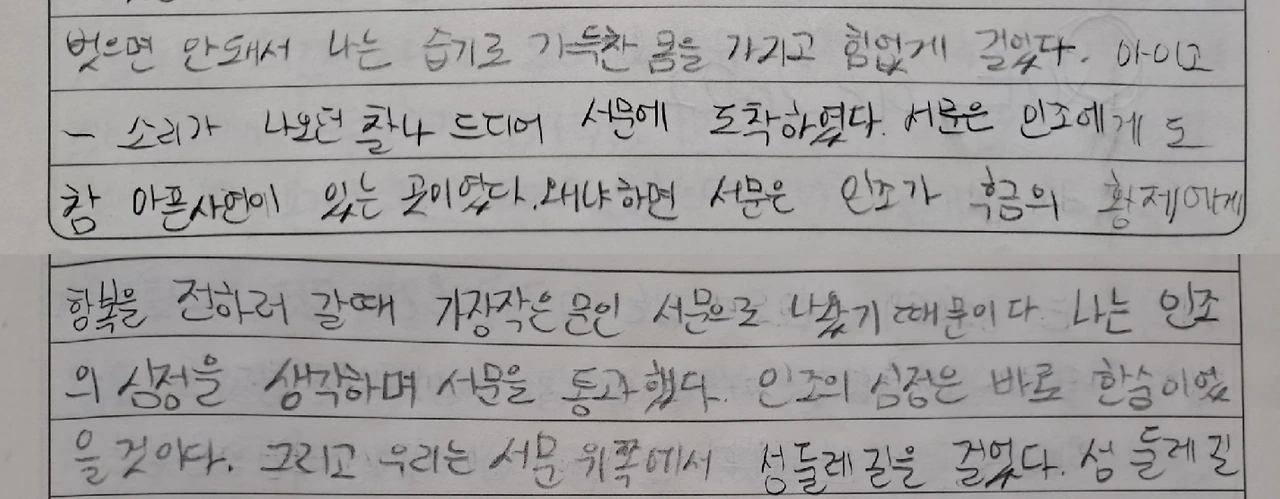 벗으면 안돼서 나는 습기로 가득찬 몸을 가지고 힘없게 걸었다. 아이고
- 소리가 나오던 찰나 드디어 서문에 도착하였다. 서문은 인조에게 도
참 아픈사연이 있는 곳이었다. 왜냐하면 서문은 인조가 후금의 황제에게
항복을 전하러 갈때 가장작은 문인 서문으로 나왔기 때문이다. 나는 인조
의 심정을 생각하며 서문을 통과했다. 인조의 심정은 바로 한숨이었
을 것이다. 그리고 우리는 서문 위쪽에서 성둘레길을 걸었다. 성 둘레길